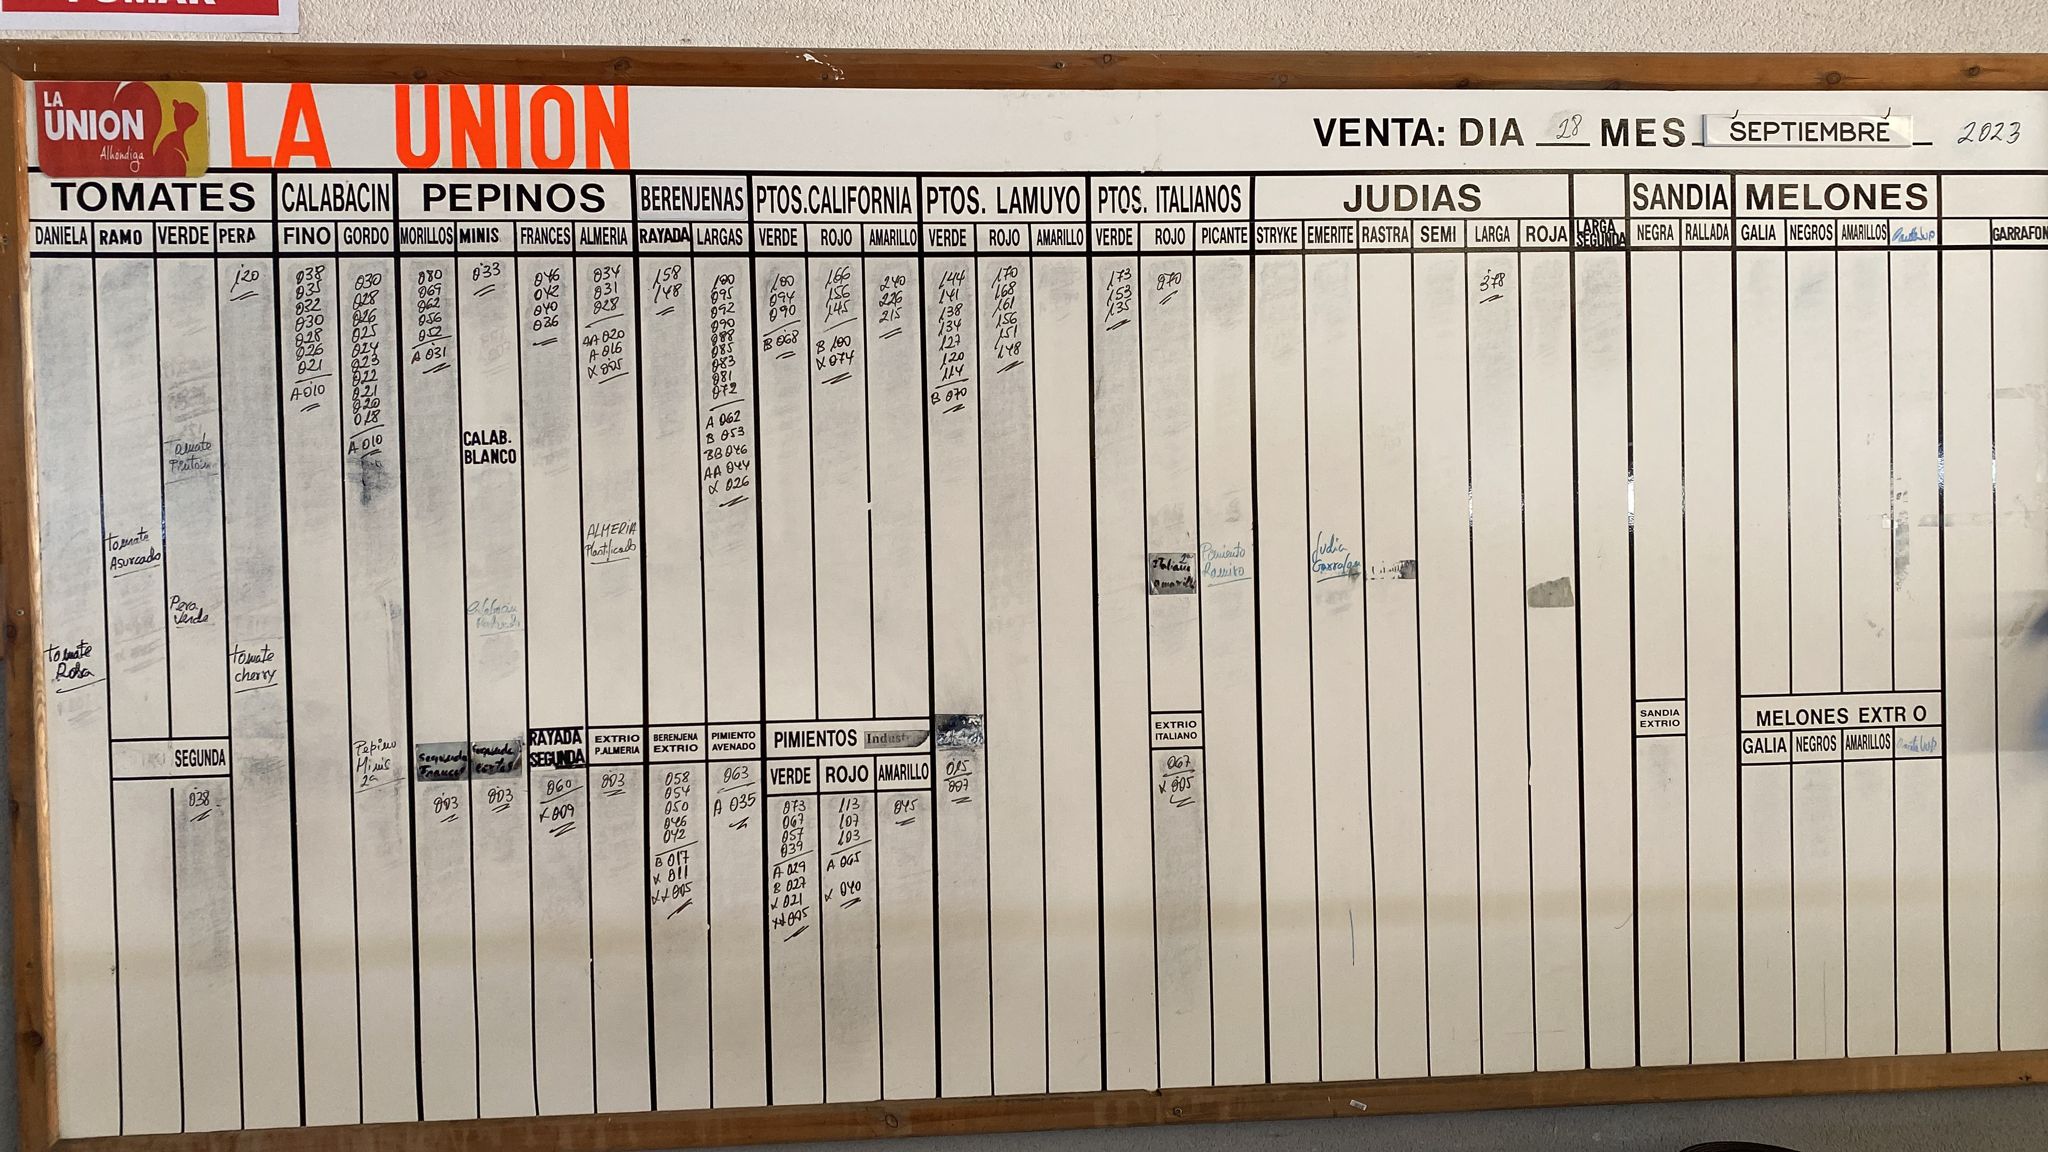 FUMAR
LA
UNION
Alhóndiga
LA UNION
VENTA: DIA 28 MES SEPTIEMBRE 2023
TOMATES CALABACIN PEPINOS BERENJENAS PTOS.CALIFORNIA PTOS. LAMUYO PTOS. ITALIANOS JUDIAS LARGA SEGUNDA SANDIA MELONES
DANIELA RAMO VERDE PERA FINO GORDO MORILLOS MINIS FRANCES ALMERIA RAYADA LARGAS VERDE ROJO AMARILLO VERDE ROJO AMARILLO VERDE ROJO PICANTE STRYKE EMERITE RASTRA SEMI LARGA ROJA NEGRA RALLADA GALIA NEGROS AMARILLOS GARRAFON
120
038
035
032
030
028
026
021
A 010
030
028
026
025
024
023
022
021
020
018
A 010
080
069
062
056
052
A 031
033
046
042
040
036
034
031
028
AA 020
A 016
X 005
158
148
100
095
092
090
088
085
083
081
072
A 062
B 053
BB 046
AA 044
X 026
100
094
090
B 068
166
156
145
B 100
X 074
240
226
215
144
141
138
134
127
120
114
B 070
170
168
161
156
151
148
173
153
135
070
378
Tomate
Pintón
CALAB.
BLANCO
Tomate
Asurcado
ALMERIA
Plastificado
Italiano
Amarillo
Pimiento
Ramiro
Judia
Garrafon
Pera
Verde
Tomate
Rosa
Tomate
cherry
SEGUNDA
038
Pepino
Minis
2ª
Segunda
Frances
003
Segunda
Cortas
003
RAYADA
SEGUNDA
060
X 009
EXTRIO
P.ALMERIA
003
BERENJENA
EXTRIO
058
054
050
046
042
B 017
X 011
XX 005
PIMIENTO
AVENADO
063
A 035
PIMIENTOS Indust
VERDE ROJO AMARILLO
073
067
057
039
A 029
B 027
X 021
XX 005
113
107
103
A 065
X 040
045
015
007
EXTRIO
ITALIANO
067
X 005
SANDIA
EXTRIO
MELONES EXTR O
GALIA NEGROS AMARILLOS